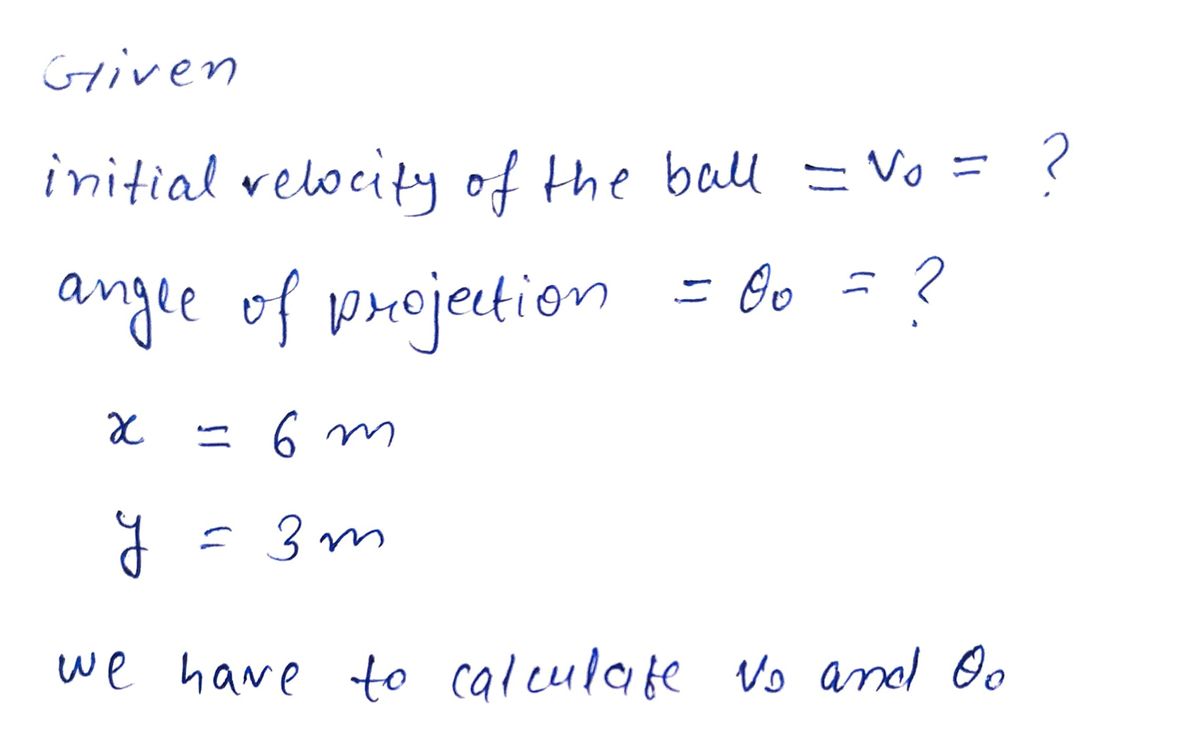 Given
initial velocity of the ball = v₀ = ?
angle of projection = θ₀ = ?
x = 6 m
y = 3 m
we have to calculate v₀ and θ₀